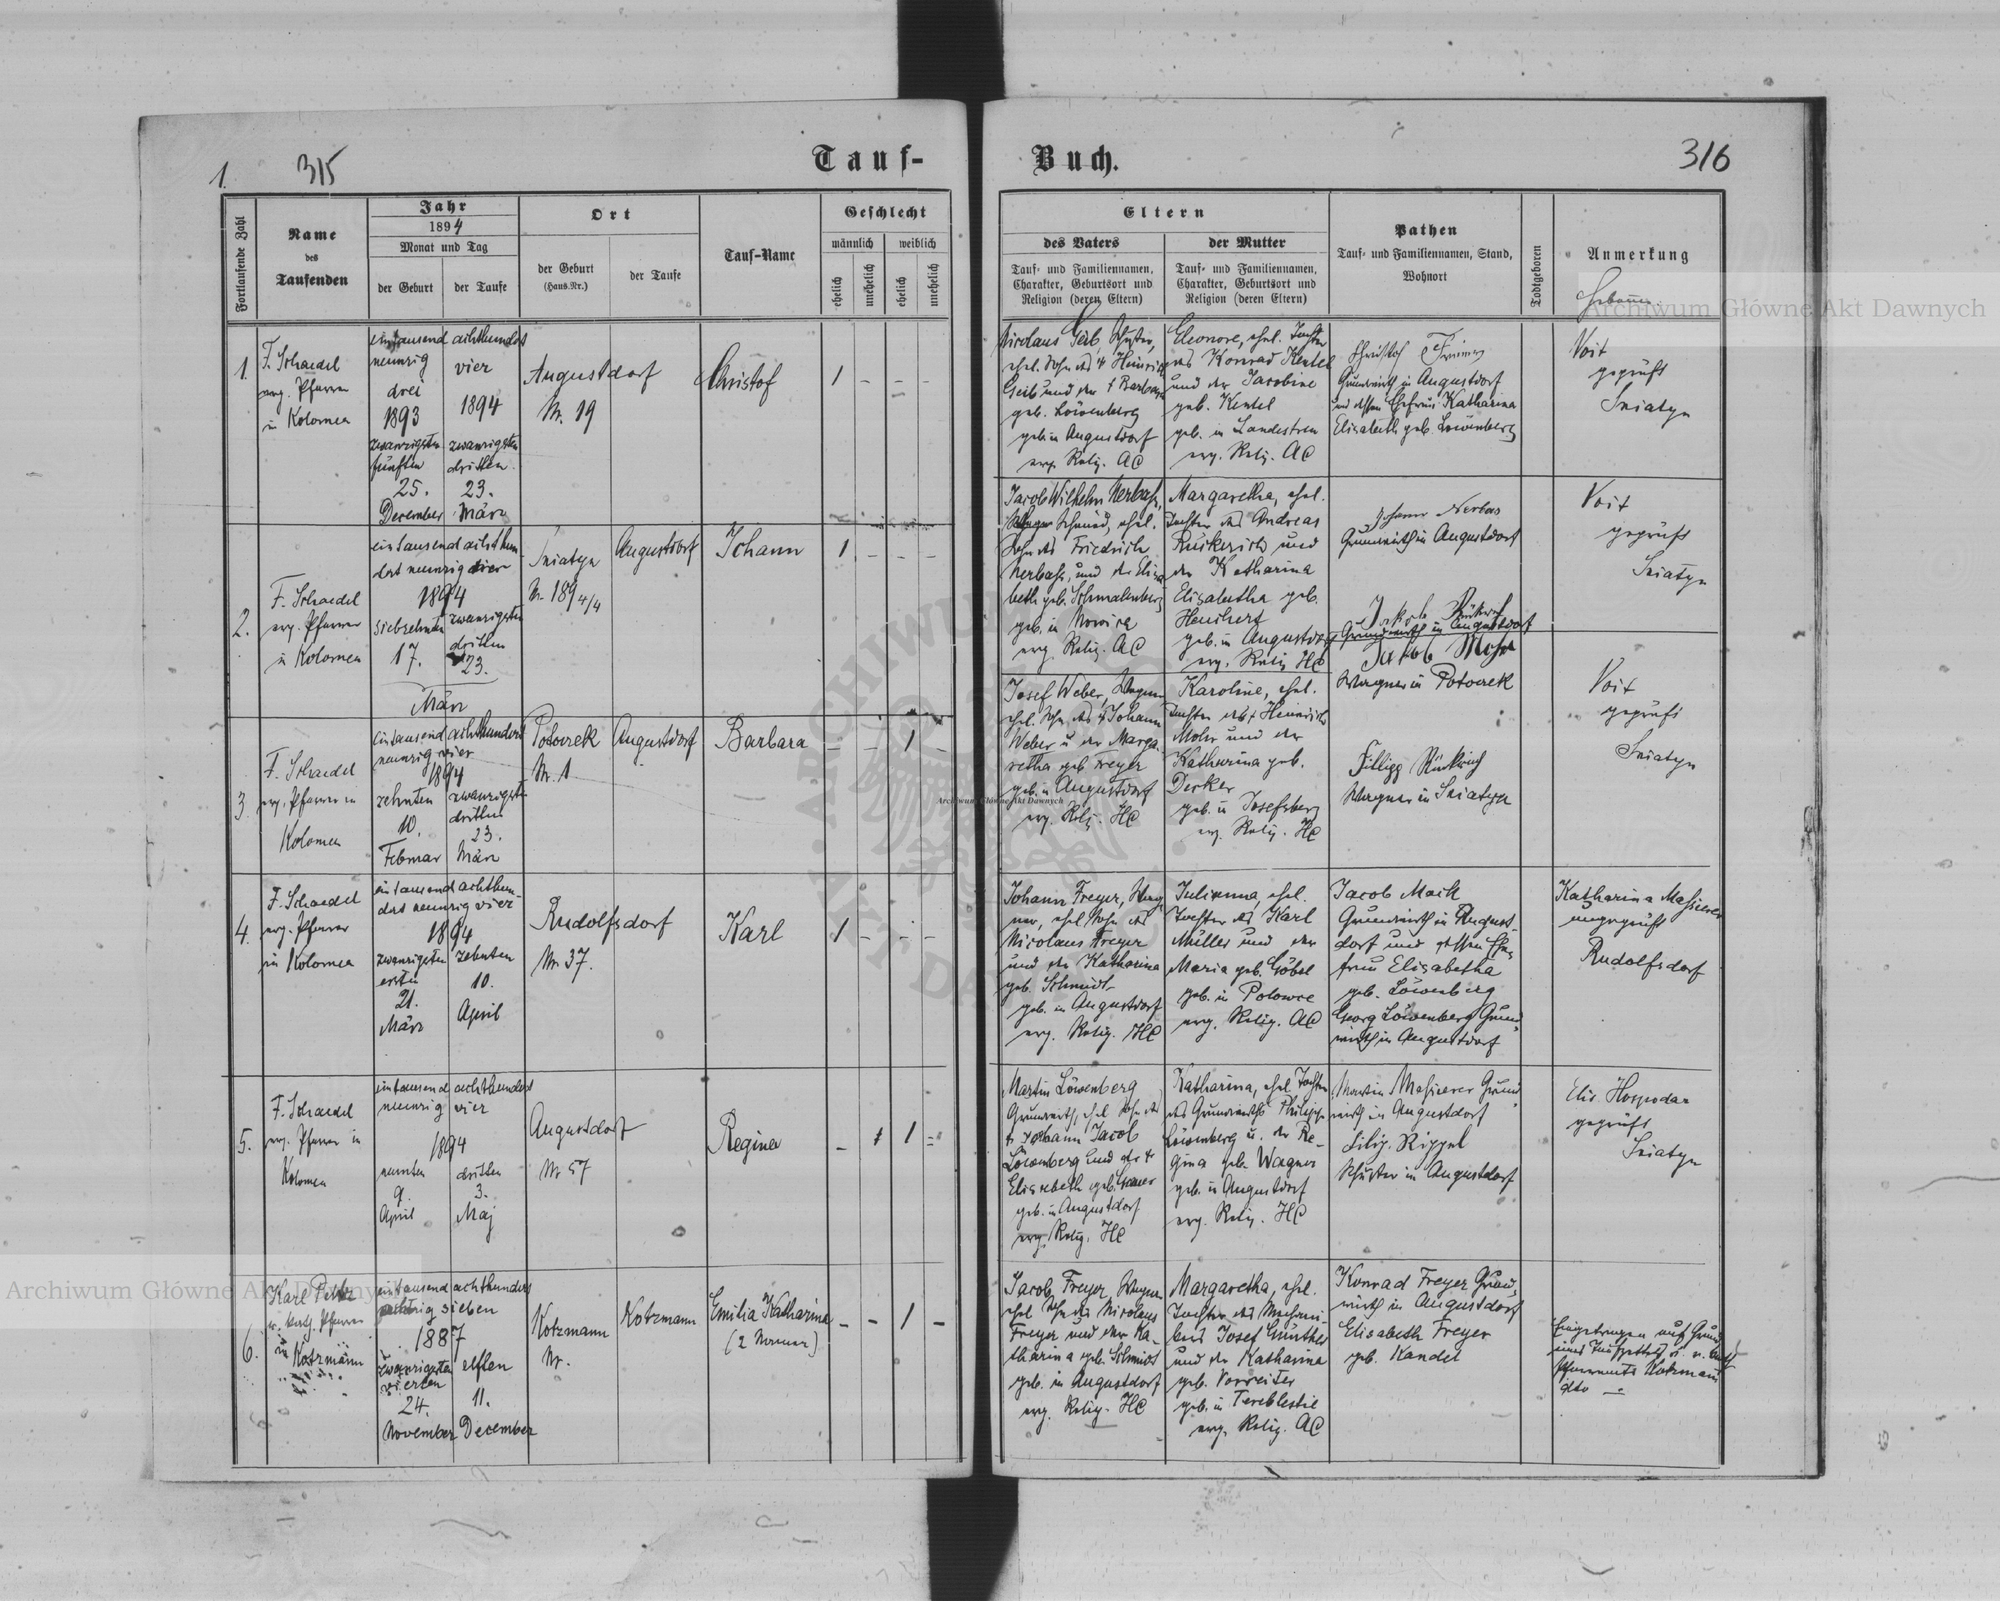 1.
315
Tauf-
Fortlaufende Zahl
Name
des
Taufenden
Jahr
1894
Monat und Tag
der Geburt
der Taufe
Ort
der Geburt
(Haus.Nr.)
der Taufe
Tauf-Name
Geschlecht
männlich
weiblich
ehelich
unehelich
ehelich
unehelich
1.
F. Schaedel
evg. Pfarrer
in Kolomea
eintausend achthundert
neunzig vier
drei
1893 1894
zwanzigsten zwanzigsten
fünften dritten
25. 23.
December März
Augustdorf
Nr. 19
Christof
1 - - -
2.
F. Schaedel
evg. Pfarrer
in Kolomea
eintausend achthun-
dert neunzig vier
1894
siebzehnten zwanzigsten
dritten
17. 23.
März
Sniatyn
Nr. 189 4/4
Augustdorf
Johann
1 - - -
3
F. Schaedel
evg. Pfarrer in
Kolomea
eintausend achthundert
neunzig vier
1894
zehnten zwanzigsten
dritten
10. 23.
Februar März
Potoczek
Nr. 1
Augustdorf
Barbara
- - 1 -
4.
F. Schaedel
evg. Pfarrer
in Kolomea
eintausend achthun-
dert neunzig vier
1894
zwanzigsten zehnten
ersten
21. 10.
März April
Rudolfsdorf
Nr. 37.
Karl
1 - - -
5.
F. Schaedel
evg. Pfarrer in
Kolomea
eintausend achthundert
neunzig vier
1894
neunten dritten
9. 3.
April Maj
Augustdorf
Nr 57
Regina
- 1
6.
Karl
Pfarrer
in Kotzmann
eintausend achthundert
achtzig sieben
1887
zwanzigsten elften
vierten
24. 11.
November December
Kotzmann
Nr.
Kotzmann
Emilia Katharina
(2 Namen)
- - 1 -
Buch.
316
Eltern
des Vaters
Tauf- und Familiennamen,
Charakter, Geburtsort und
Religion (deren Eltern)
der Mutter
Tauf- und Familiennamen,
Charakter, Geburtsort und
Religion (deren Eltern)
Pathen
Tauf- und Familiennamen, Stand,
Wohnort
Todtgeboren
Anmerkung
Nicolaus Geib, Schuster,
ehel. Sohn des † Heinrich
Geib und der † Barbara
geb. Löwenberg
geb. in Augustdorf
evg. Relig. AC
Eleonore, ehel. Tochter
des Konrad Kentel
und der Jacobine
geb. Kentel
geb. in Landestreu
evg. Relig. AC
Christof
Grundwirth in Augustdorf
und dessen Ehefrau Katharina
Elisabeth geb. Löwenberg
Voit
geprüft
Sniatyn
Jacob Wilhelm Nerbass,
Schmied, ehel.
Sohn des Friedrich
Nerbass, und der Elisa
beth geb. Schmalenberg
geb. in
evg. Relig. AC
Margaretha, ehel.
Tochter des Andreas
und
der Katharina
Elisabetha geb.
geb. in Augustdorf
evg. Relig HC
Johann Nerbas
Grundwirth in Augustdorf
Jakob
Grundwirth in Augustdorf
Voit
geprüft
Sniatyn
Josef Weber, Wagner
ehel. Sohn des † Johann
Weber u. der Marga-
retha geb. Freyer
geb. in Augustdorf
evg. Relig. HC
Karoline, ehel.
Tochter des † Heinrich
Mohr und der
Katharina geb.
Decker
geb. in Josefsberg
evg. Relig. HC
Jakob Mohr
Wagner in Potoczek
Wagner in Sniatyn
Voit
geprüft
Sniatyn
Johann Freyer, Wag
ner, ehel Sohn des
Nicolaus Freyer
und der Katharina
geb. Schmidt
geb. in Augustdorf
evg. Relig. HC
Julianna, ehel.
Tochter des Karl
Müller und der
Maria geb. Göbel
geb. in Polowce
evg. Relig. AC
Jacob Mack
Grundwirth in August-
dorf und dessen Ehe-
frau Elisabetha
geb. Löwenberg
Georg Löwenberg Grund-
wirth in Augustdorf
Katharina
ungeprüft
Rudolfsdorf
Martin Löwenberg
Grundwirth, ehel Sohn des
† Johann Jacob
Löwenberg und der †
Elisabeth geb.
geb. in Augustdorf
evg. Relig. HC
Katharina, ehel Tochter
des Grundwirths Philipp
Löwenberg u. der Re-
gina geb. Wagner
geb. in Augustdorf
evg. Relig. HC
Martin Grund-
wirth in Augustdorf
Rippel
Schuster in Augustdorf
Elis. Hospodar
geprüft
Sniatyn
Jacob Freyer, Wagner
ehel Sohn des Nicolaus
Freyer und der Ka-
tharina geb. Schmidt
geb. in Augustdorf
evg. Relig. HC
Margaretha, ehel.
Tochter des
Josef Günther
und der Katharina
geb. Vorreiter
geb. in Tereblestie
evg. Relig. AC
Konrad Freyer Grund-
wirth in Augustdorf
Elisabeth Freyer
geb. Kandel
Eingetragen auf Grund
Kotzmann
dto
Archiwum Główne Akt Dawnych
Archiwum Główne Akt Dawnych
Archiwum Główne Akt Dawnych